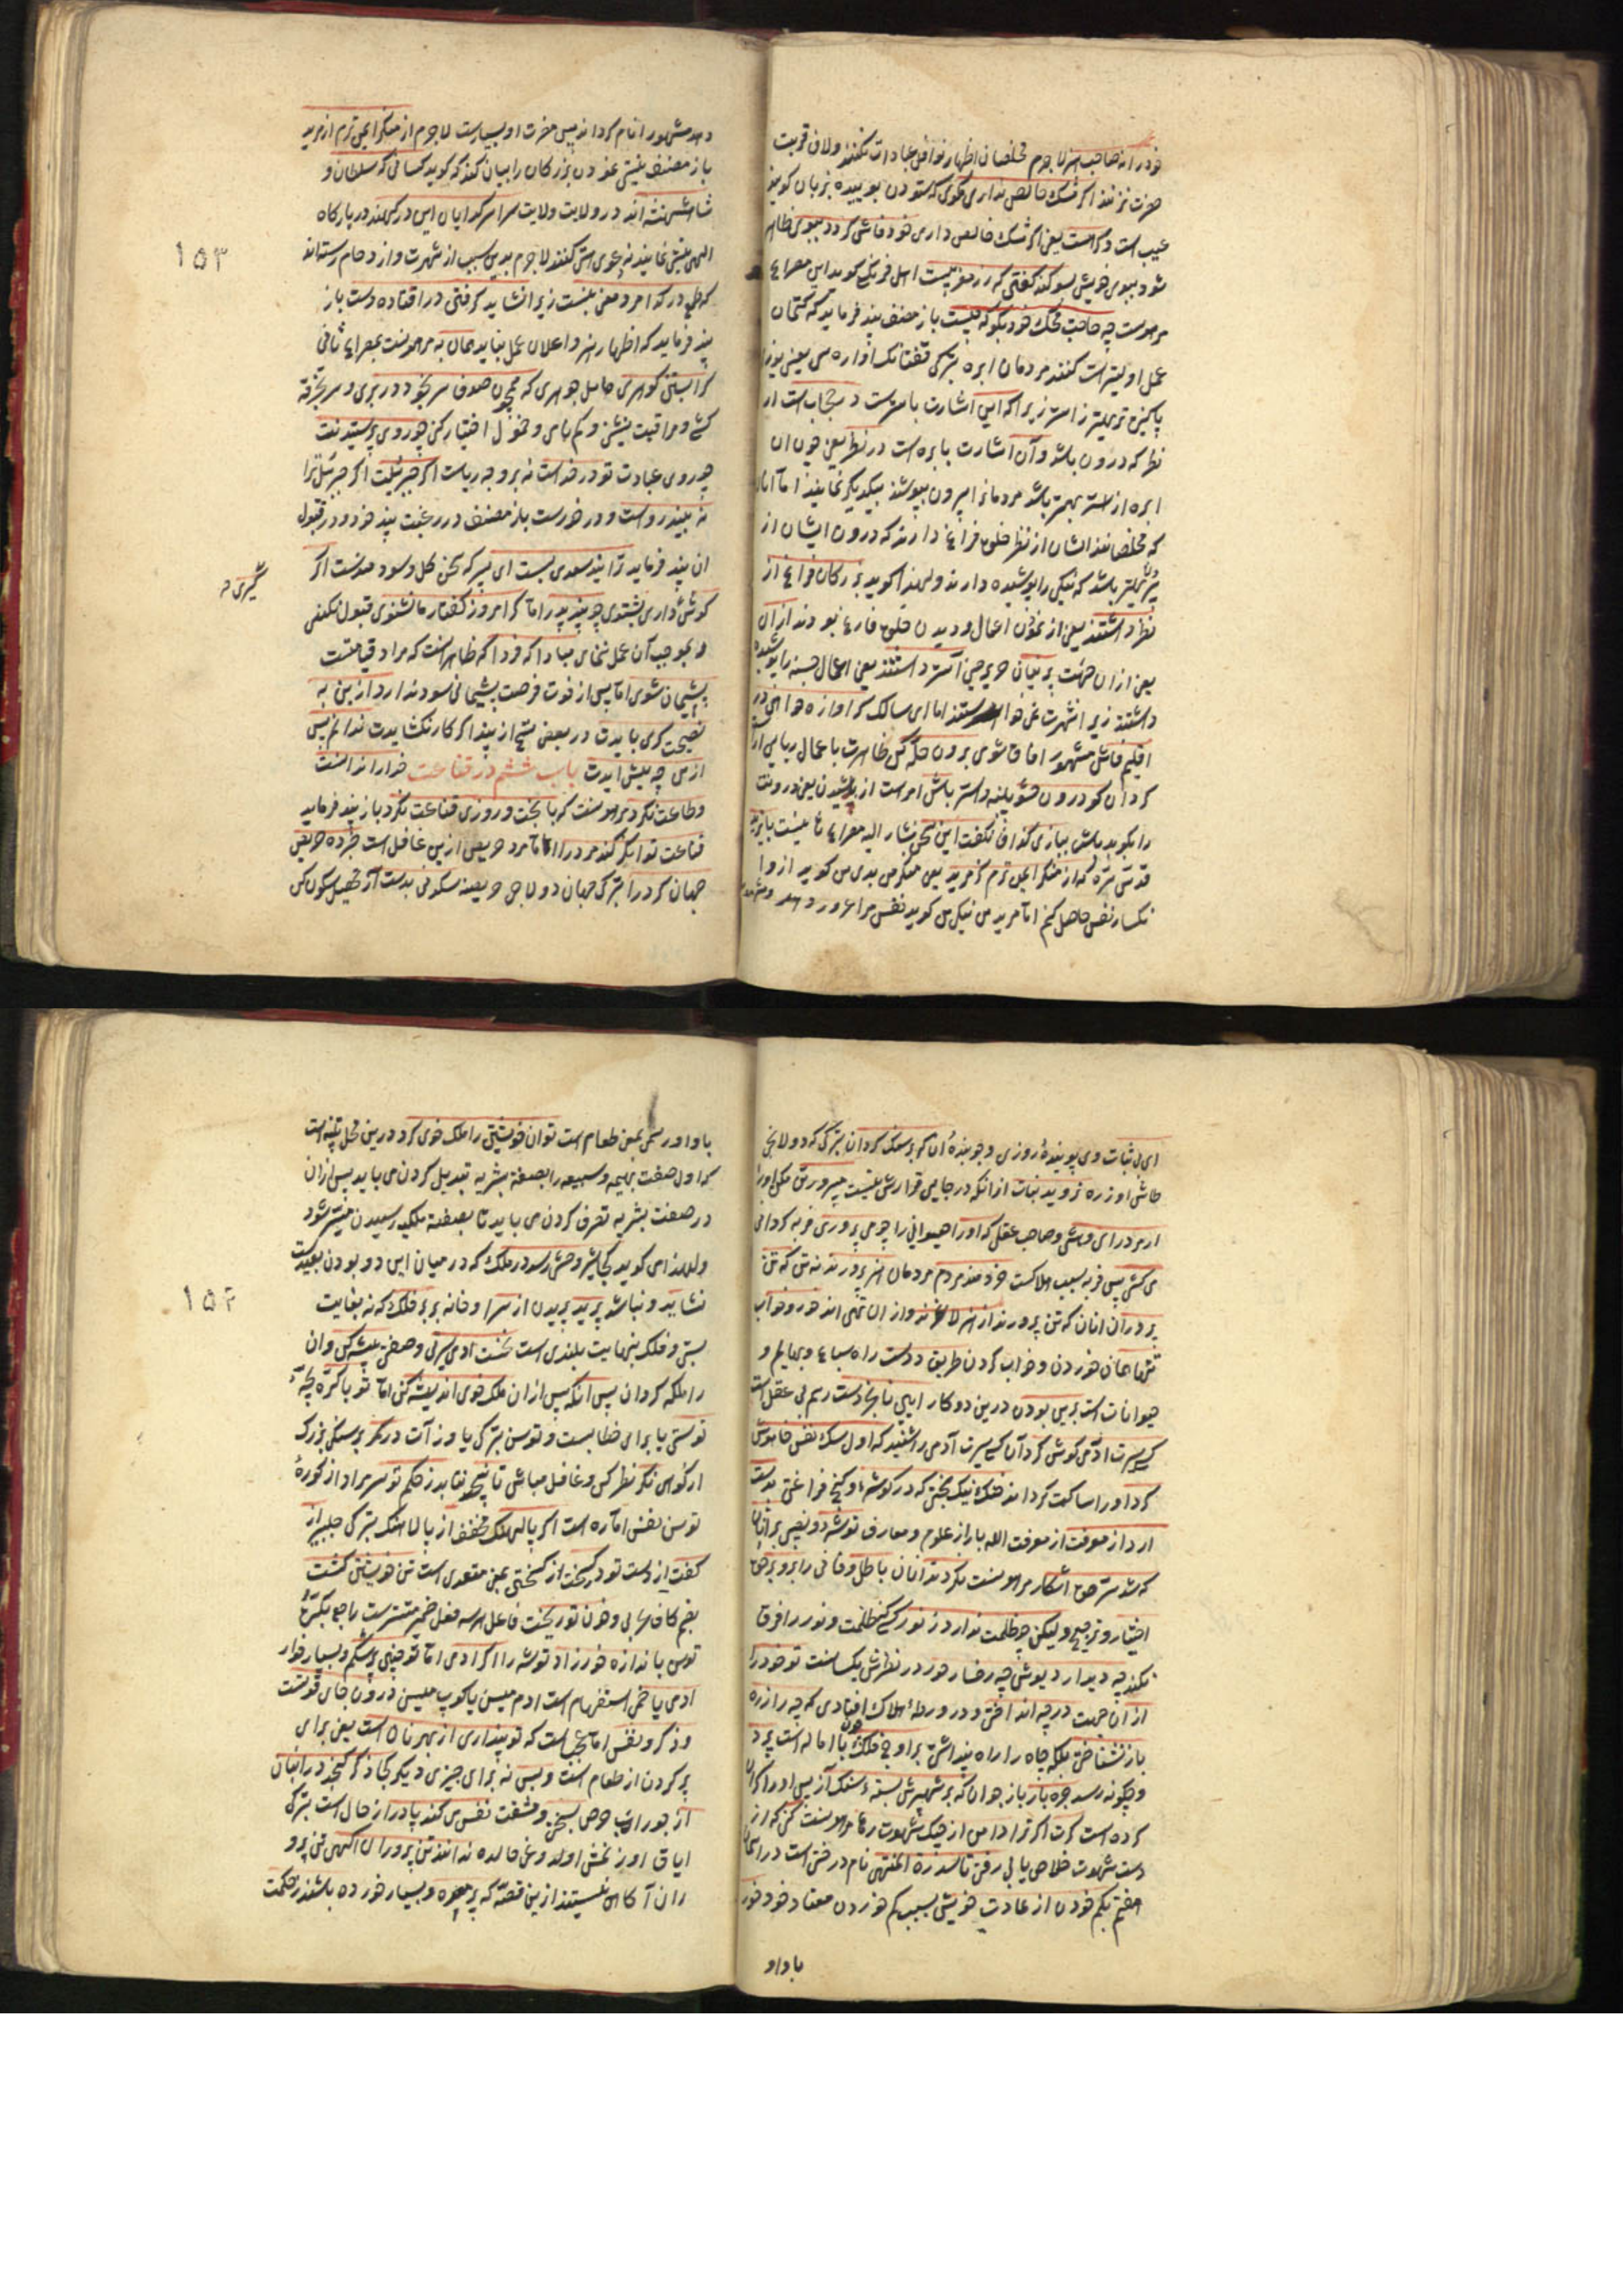 خود را نه صاحب هنر لاجرم مخلصان اظهار نوافل عبادات نکنند ولاف قربت
حضرت نزنند اگر مشک خالص نداری مگوی که ستودن بوییده بزبان گویند
عیب است وگر هست یعنی اگر مشک خالص داری خود فاش گردد ببوی ظاهر
شود ببوی خویش بسوگند گفتن که زر مغربیست اهل فرنگ گوید این مصراع
مرهونست چه حاجت محک خود بگوید که چیست باز مصنف پند فرماید که کتمان
عمل اولیتر است کنند مردمان ابره
پاکیزه تری زیرا که این اشارت باسترست و حجاب است از
نظر که درون باشد و آن اشارت بابره است در نظر یعنی چون آن
ابره از استر بهتر باشد مردمانرا بیرون بپوشند بیکدیگر نمایند اما آنان
که مخلصانند ایشان از نظر خلق فراغ دارند که درون ایشان از
باشد که نیکی را پوشیده دارند ولهذا گوید بزرگان فراغ از
نظر داشتند یعنی از نمودن اعمال و دیدن خلق فارغ بودند از آن
یعنی از آن جهت پرنیان حریر چین آستر داشتند یعنی اعمال حسنه را پوشیده
داشتند زیرا شهرت نمی خواستند اما ای سالک گر آوازه خواهی در
اقلیم فاش مشهور آفاق شوی برون حله کن ظاهرت باعمال ریایی آراسته
گردان گو درون حشو پنبه و استر باش امر است از باشیدن یعنی درونت
را بگوید باش ببازی گذاف نگفت این سخن مشار الیه مصراع ثانیست بایزید
قدس سره که از منکر ایمن ترم کز مرید یعنی منکر من بدی من گوید ازو
انکسار نفس حاصل کنم اما مرید من نیکی من گوید نفس مرا غرور دهد ومشهور
دهد مشهور انام گرداند پس مضرت او بسیارست لاجرم از منکر ایمن ترم از مرید
باز مصنف نیستی نمودن بزرگان را بیان کند که گوید کسانی که سلطان و
شاهنشه اند در ولایت ولایت سراسر گدایان این درگهند در بارگاه
الهی نیستی نمایند نه دعوی هستی کنند لاجرم بدین سبب از شهرت و ازدحام رسته اند
که طمع در گدا مرد معنی نبست زیرا نشاید گرفتن در افتاده دست باز
پند فرماید که اظهار هنر و اعلان عمل نباید همان به مرهونست بمصراع ثانی
گر آبستن گوهری حامل جوهری که همچون صدف سر بخود در بری و سر بخرقه
کشی و مراقبت بنشینی و گم نامی و خمول اختیار کنی چو روی پرستیدنت
چو روی عبادت تو در خداست نه بر وجه ریاست اگر جبرئیلت اگر جبرئیل ترا
نه بیند رواست و در خورست باز مصنف در رغبت پند خود و در قبول
آن پند فرماید ترا پند سعدی بست ای پسر که سخن کل وسودمندست اگر
گوش داری بشنوی چو پند پدر اما گر امروز گفتار ما نشنوی قبول نکنی
و بموجب آن عمل ننمای مبادا که فردا که ظاهر است که مراد قیامتست
پشیمان شوی اما پس از فوت فرصت پشیمانی سود ندارد ازین به
نصیحت گری بایدت در بعضی نسخ از پند اگر کار نگشایدت ندانم پس
از من چه پیش آیدت باب ششم در قناعت خدا را ندانست
وطاعت نکرد مرهونست که با بخت و روزی قناعت نکرد باز پند فرماید
قناعت توانگر کند مرد را اما مرد حریص ازین غافل است خبر ده حریص
جهان گرد را بترکی جهان دولاجی حریصنه سکونی بدست آر تحصیل سکون کن
گیری د
١٥٣
ای بی ثبات و ای پوینده روزی و جوینده آن که بر سنگ گردان بترکی که دولانجی
طاش اوزره نروید نبات از آنکه در جایی قرارش نیست مپرور تن مکن اورا
ار مرد رای وهشی وصاحب عقل که اورا حیوانی را چو می پروری فربه گردانی
می کشی پس فربه بسبب هلاکست خردمند مردم مردمان هنر پرورند نه تن که تن
پروران آنان که تن پرورند از هنر لاغرند و از آن تهی اند خور و خواب
تنها همان خوردن و خواب کردن طریق ددست راه سباع و بهایم و
حیوانات است برین بودن درین دو کار آیین نابخردست رسم بی عقل است
کسی سیرت آدمی گوش کرد آن کسی سیرت آدمی را شنید که اول سگ نفس خاموش
کرد اورا ساکت گردانید خنک نیک بختی که در گوشه و کنج فراغتی بدست
آرد از معرفت از معرفت الله یار از علوم و معارف توشه و نصیبی بر آنان
که شد سر حق آشکار مرهونست نکردند آنان باطل و فانی را برو بر حق
اختیار و ترجیح ولیکن چو ظلمت نداند ز نور کسی کز ظلمت و نور را فرق
نکند چه دیدار دیوش چه رخسار حور در نظرش یکسانست تو خود را
از آن جهت در چه انداختی و در ورطه هلاک افتادی که چه را ز ره
باز نشناختی بلکه چاه را راه پنداشتی بر اوج فلک با اماله است پرد
و چگونه رسد جره باز باز جوان که بر شهپرش بسته سنگ آز پس اورا گران
کرده است گرت اگر ترا دامن از چنگ شهوت رها مرهونست کنی که از
دست شهوت خلاص یابی رفتن تا سدرة المنتهی نام درختی است در آسمان
هفتم بکم خوردن از عادت خویش بسبب کم خوردن معتاد خود خورد
باداو
باد او رسمی بمعنی طعام است توان خویشتن را ملک خوی کرد و درین محل تنبیه است
که اول صفت بهیمه و سبعیه را بصفت بشریه تبدیل کردن می باید پس از آن
در صفت بشریه تصرف کردن می باید تا بصفت ملکیه رسیدن میسر شود
ولهذا می گوید کجا سیر وحشی رسد در ملک که در میان این دو بودن بعیدست
نشاید ونباشد پرید پریدن از ثرا وخانه بر فلک که نه بغایت
پستی وفلک بنهایت بلندی است نخست آدمی سیرتی وصفتی پیشه کن وآن
را ملکه گردان پس آنگه پس از آن ملک خوی اندیشه کن اما تو با کره بچه
توسنی یا برای خطابست وتوسن بترکی یاوز آت در کمر بر سنگی بزرک
از گوهی نگر نظر کن وغافل مباشی تا نپیچد نتابد ز حکم تو سر مراد از کره
توسن نفس اماره است اگر پالهنگ مخفف از پالاهنگ بترکی چلبر از
کفت از دست تو در گسیخت از گسیختن بمعنی متعدی است تن خویشتن کشت
بضم کاف عربی وخون تو ریخت فاعل هر سه فعل ضمیر مستترست راجع بکره
توسن باندازه خور زاد توشه را اگر آدمی اما تو چنین پر شکم وبسیار خوار
آدمی یا خمی استفهام است آدم میسن یا کوپ میسن درون جای قوتست
وذکر ونفس اما عجب است که تو پنداری از بهر نان است یعنی برای
پر کردن از طعام است وبس نه برای چیزی دیگر کجا ذکر گنجد در انبان
آز جوراب حرص بسختی ومشقت نفس می کند پا دراز حال است بترکی
ایاق اوزنمش اولدوغی حالده ندانند تن پروران آگهی تن پرو
ران آگاهی نیستند ازین قصه که پر معده وبسیار خورده باشند ز حکمت
١٥٤